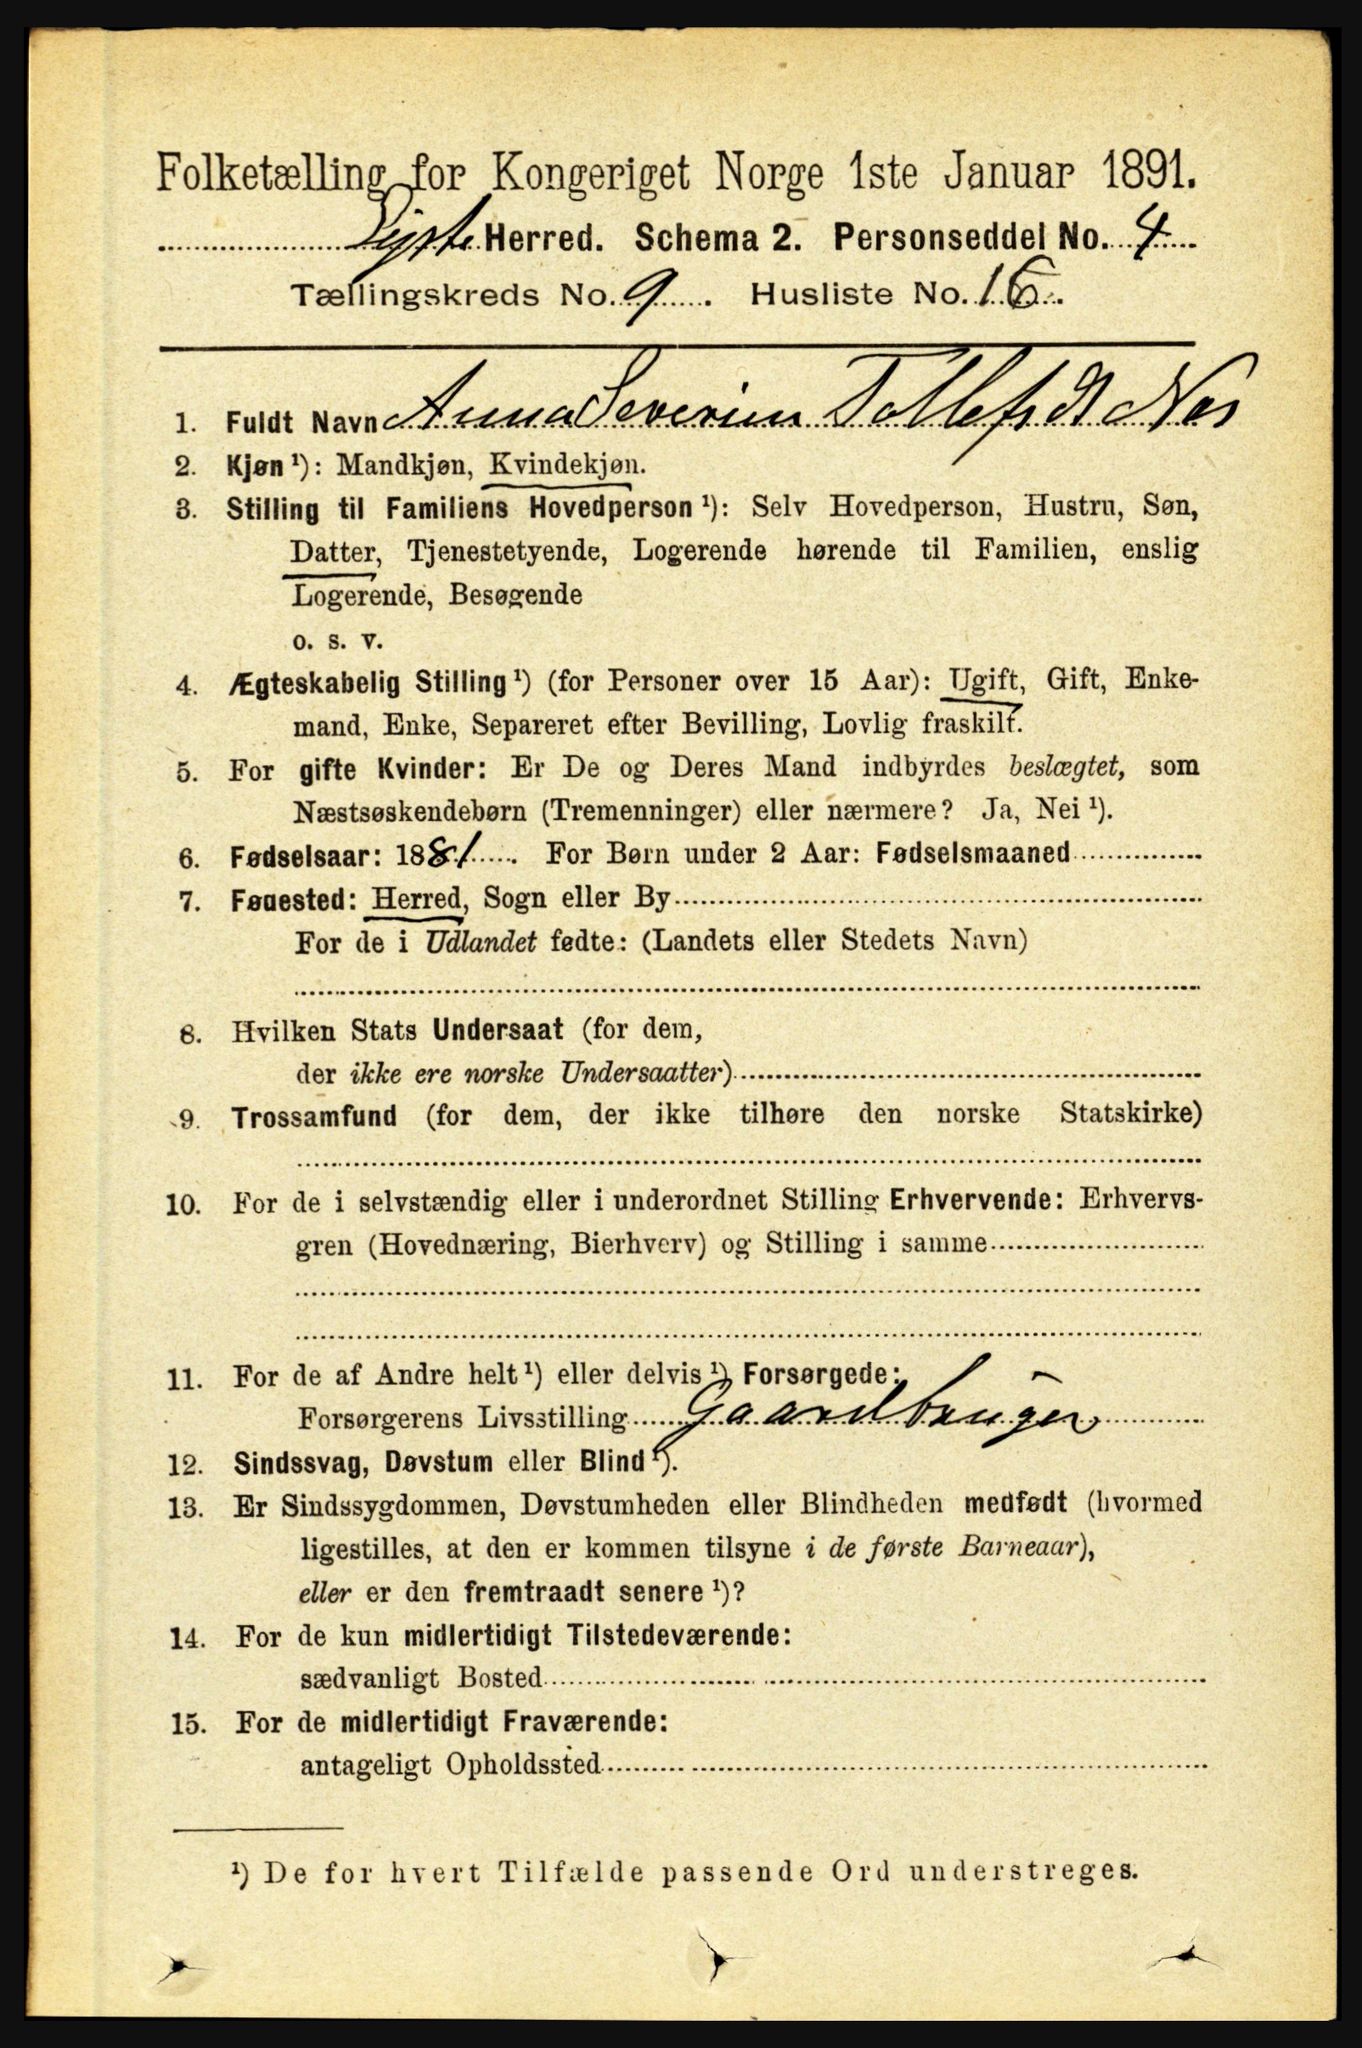 Folketælling for Kongeriget Norge 1ste Januar 1891.
Lyster Herred. Schema 2. Personseddel No. 4
Tællingskreds No. 9. Husliste No. 16.
1. Fuldt Navn Anna Severine Tollefsdt Nes
2. Kjøn ¹): Mandkjøn, Kvindekjøn.
3. Stilling til Familiens Hovedperson ¹): Selv Hovedperson, Hustru, Søn,
Datter, Tjenestetyende, Logerende hørende til Familien, enslig
Logerende, Besøgende
o. s. v.
4. Ægteskabelig Stilling ¹) (for Personer over 15 Aar): Ugift, Gift, Enke-
mand, Enke, Separeret efter Bevilling, Lovlig fraskilt.
5. For gifte Kvinder: Er De og Deres Mand indbyrdes beslægtet, som
Næstsøskendebørn (Tremenninger) eller nærmere? Ja, Nei ¹).
6. Fødselsaar: 1881. For Børn under 2 Aar: Fødselsmaaned
7. Fødested: Herred, Sogn eller By
For de i Udlandet fødte: (Landets eller Stedets Navn)
8. Hvilken Stats Undersaat (for dem,
der ikke ere norske Undersaatter)
9. Trossamfund (for dem, der ikke tilhøre den norske Statskirke)
10. For de i selvstændig eller i underordnet Stilling Erhvervende: Erhvervs-
gren (Hovednæring, Bierhverv) og Stilling i samme
11. For de af Andre helt ¹) eller delvis ¹) Forsørgede:
Forsørgerens Livsstilling Gaardbruger
12. Sindssvag, Døvstum eller Blind ¹).
13. Er Sindssygdommen, Døvstumheden eller Blindheden medfødt (hvormed
ligestilles, at den er kommen tilsyne i de første Barneaar),
eller er den fremtraadt senere ¹)?
14. For de kun midlertidigt Tilstedeværende:
sædvanligt Bosted
15. For de midlertidigt Fraværende:
antageligt Opholdssted
¹) De for hvert Tilfælde passende Ord understreges.